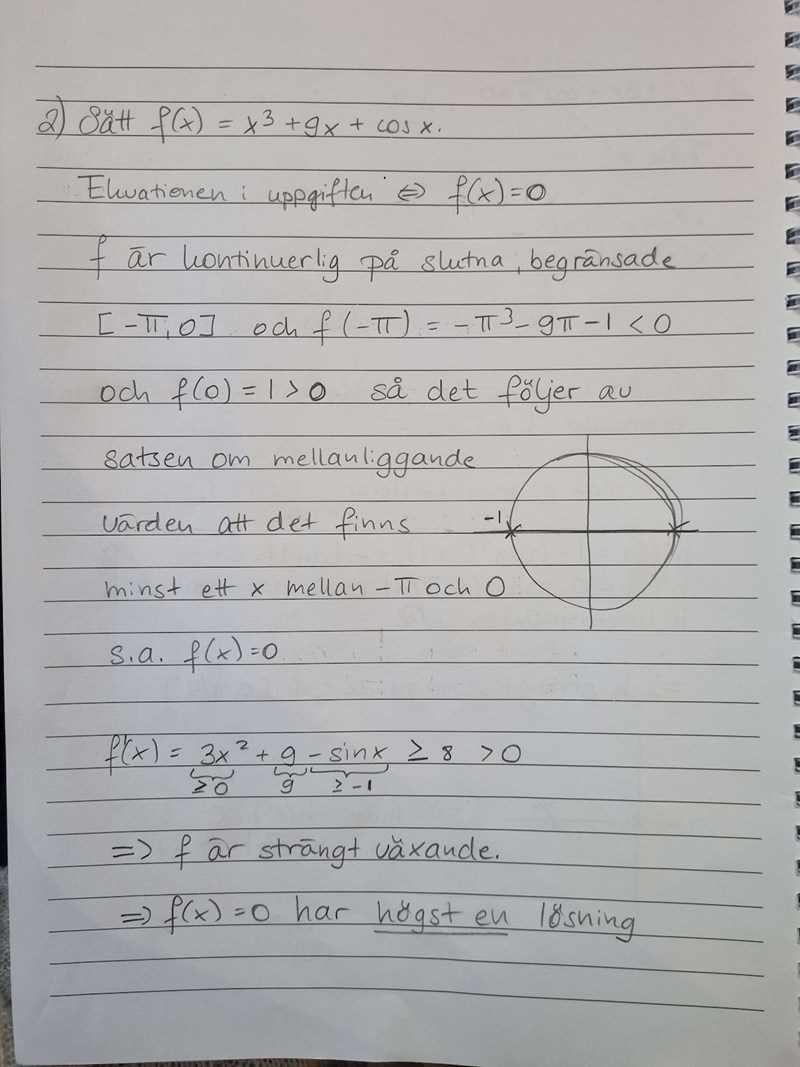 2) Sätt f(x) = x³ + 9x + cos x.
Ekvationen i uppgiften ⇔ f(x)=0
f är kontinuerlig på slutna, begränsade
[-π, 0] och f(-π) = -π³ - 9π - 1 < 0
och f(0) = 1 > 0 så det följer av
satsen om mellanliggande
värden att det finns
-1
minst ett x mellan -π och 0
s.a. f(x)=0
f'(x) = 3x² + 9 - sinx ≥ 8 > 0
≥0 9 ≥-1
=> f är strängt växande.
=> f(x) = 0 har högst en lösning